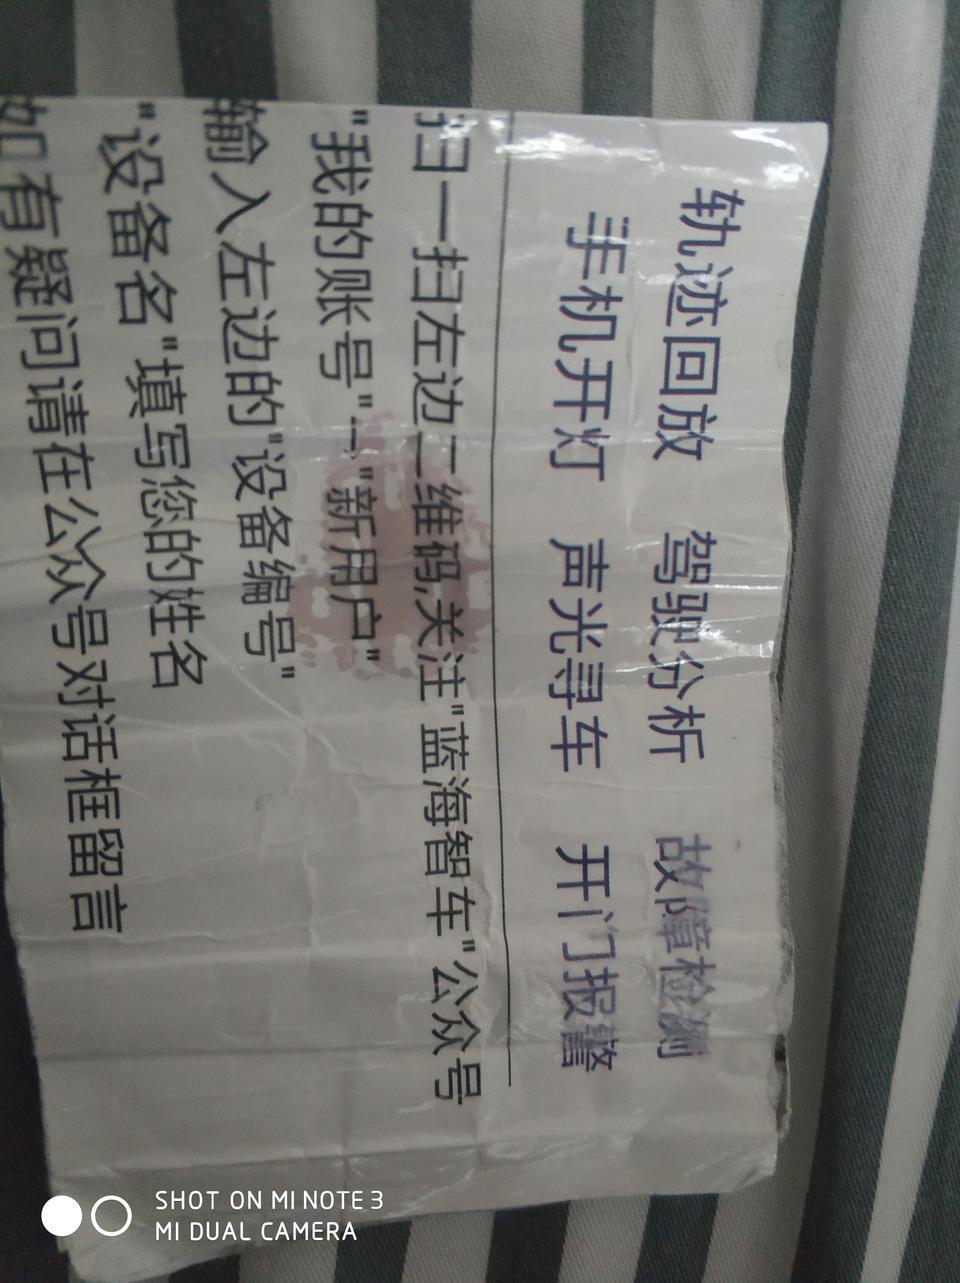 轨迹回放 驾驶分析 故障检测
手机开灯 声光寻车 开门报警
扫一扫左边二维码,关注"蓝海智车"公众号
"我的账号"→"新用户"
输入左边的"设备编号"
"设备名"填写您的姓名
如有疑问请在公众号对话框留言
SHOT ON MI NOTE 3
MI DUAL CAMERA